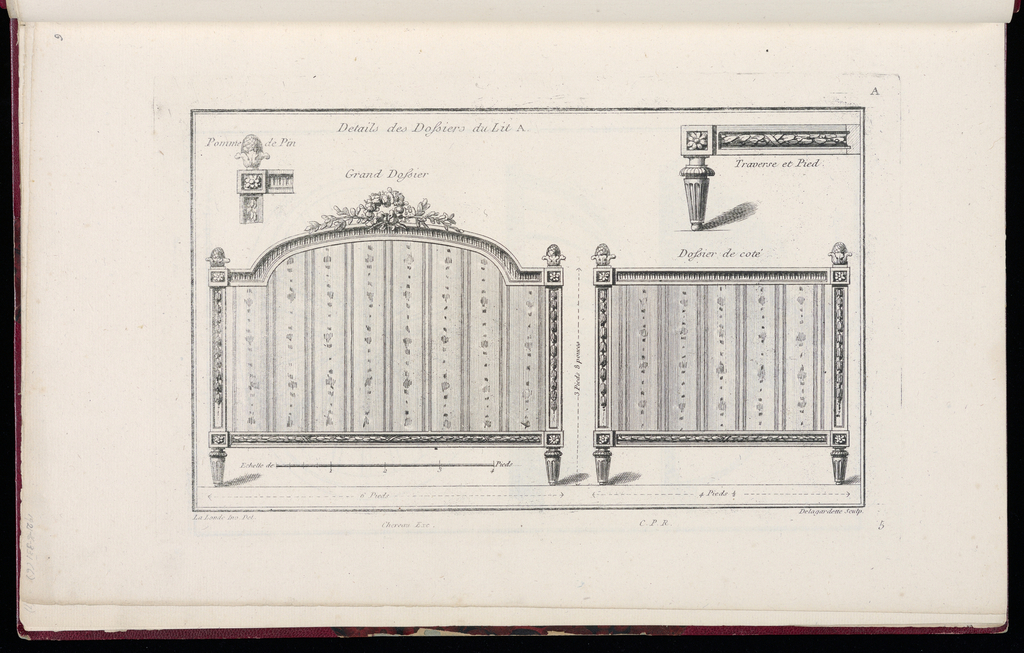 A
Details des Doſsiers du Lit A.
Pomme de Pin
Grand Doſsier
Traverse et Pied.
Doſsier de coté
3 Pieds 8 pouces
Echelle de 1 2 3 4 Pieds
6 Pieds
4 Pieds ½
La Londe Inv. Del.
Delagardette Sculp.
Chereau Exc.
C. P. R.
b
6